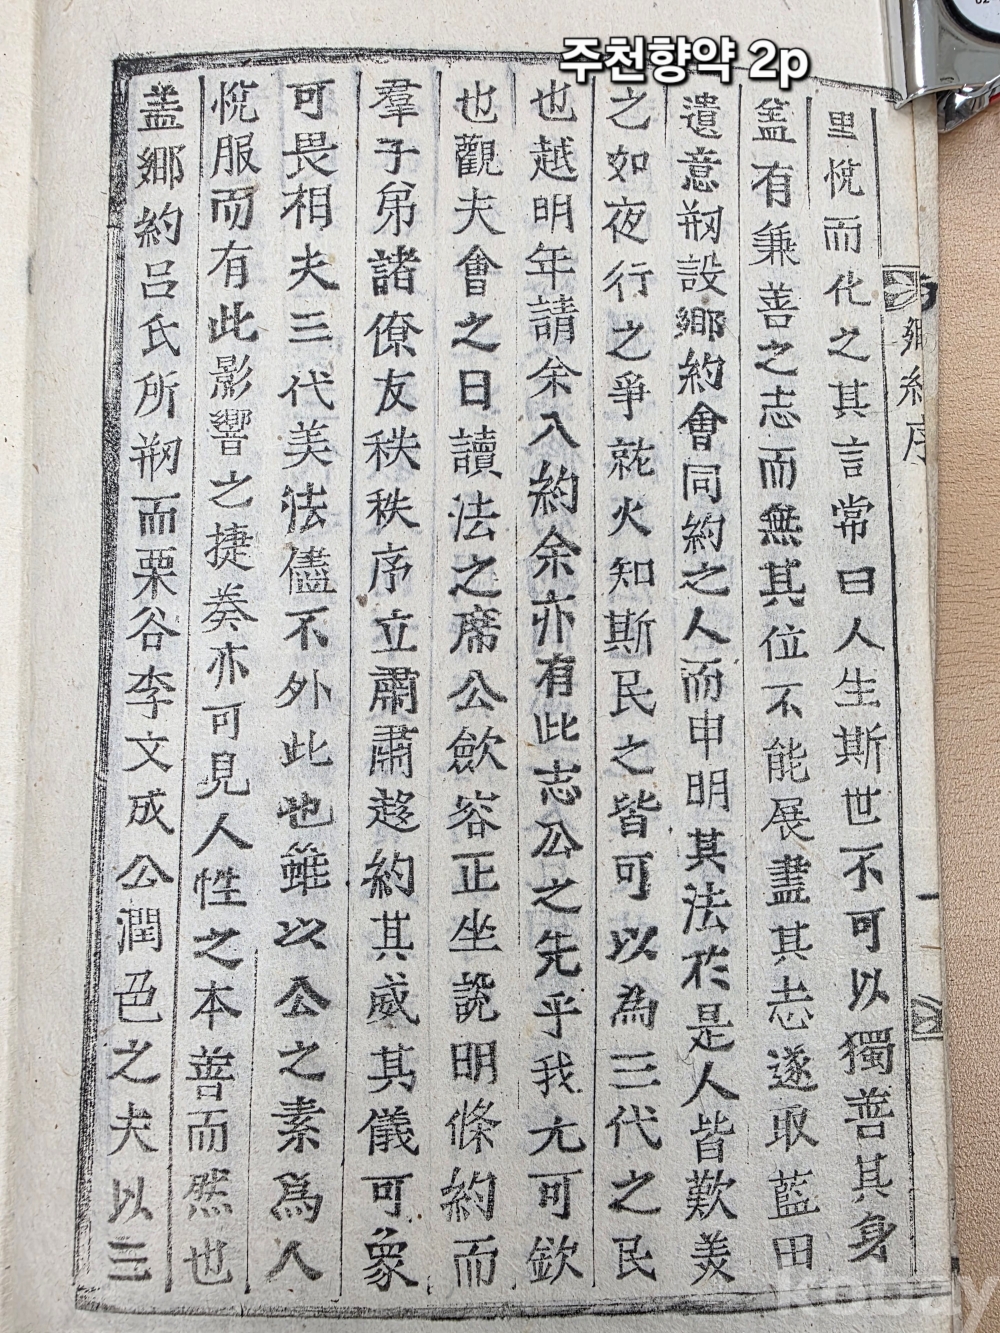 주천향약 2p
鄉約序
一
里悅而化之其言常曰人生斯世不可以獨善其身
盖有兼善之志而無其位不能展盡其志遂取藍田
遺意刱設鄉約會同約之人而申明其法於是人皆歎美
之如夜行之爭就火知斯民之皆可以為三代之民
也越明年請余入約余亦有此志公之先乎我尤可欽
也觀夫會之日讀法之席公斂容正坐說明條約而
羣子弟諸僚友秩秩序立肅肅趍約其威其儀可象
可畏相夫三代美法儘不外此也雖以公之素爲人
悅服而有此影響之捷奏亦可見人性之本善而然也
盖鄉約呂氏所刱而栗谷李文成公潤色之夫以三
kobay